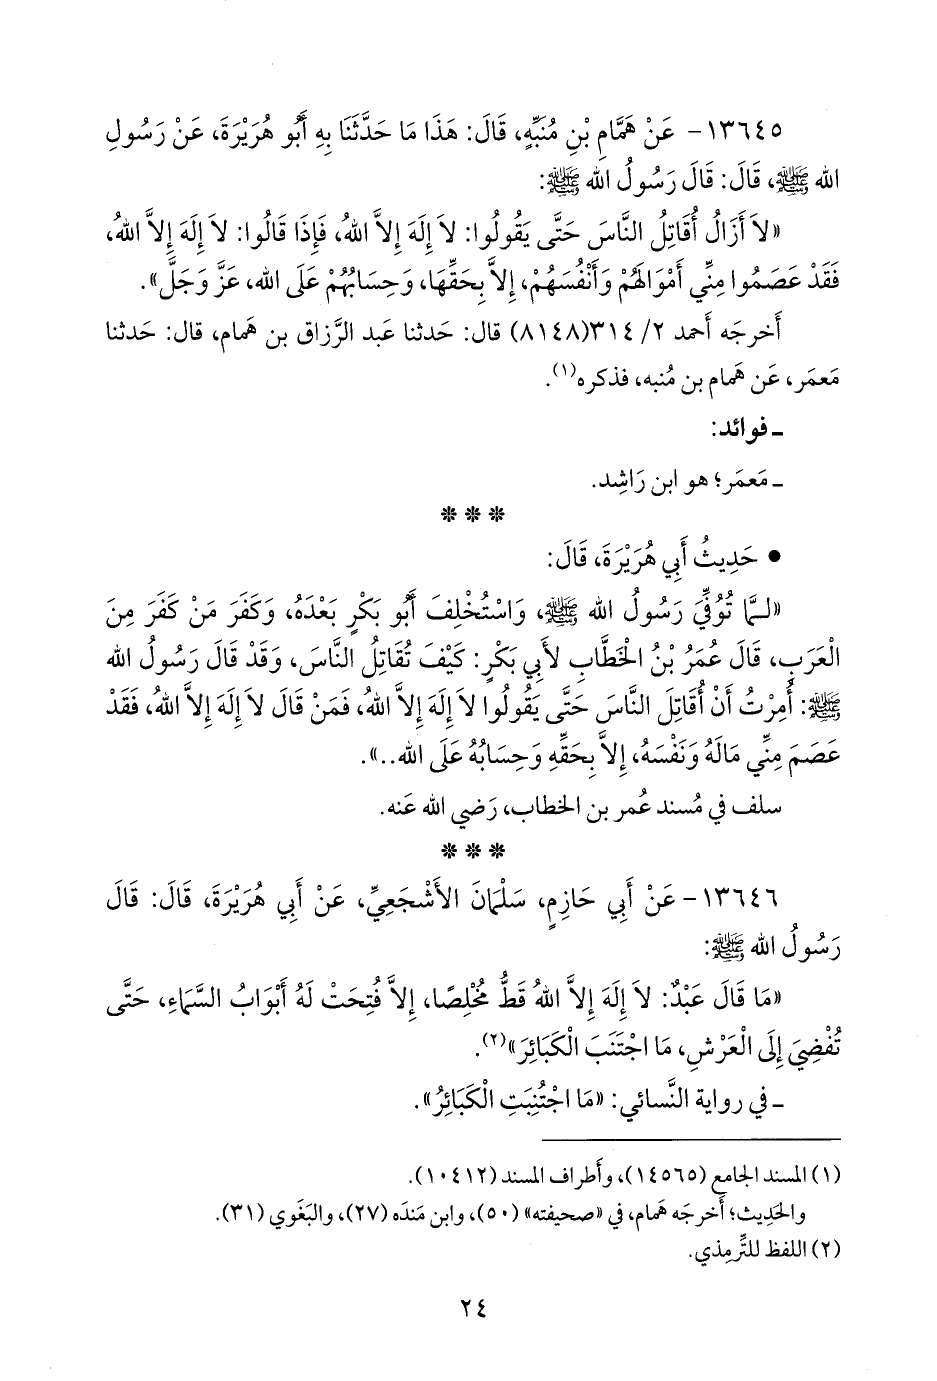 ١٣٦٤٥- عَنْ هَمَّامِ بْنِ مُنَبِّهٍ، قَالَ: هَذَا مَا حَدَّثَنَا بِهِ أَبُو هُرَيْرَةَ، عَنْ رَسُولِ
الله ﷺ، قَالَ: قَالَ رَسُولُ الله ﷺ:
«لاَ أَزَالُ أُقَاتِلُ النَّاسَ حَتَّى يَقُولُوا: لاَ إِلَهَ إِلاَّ اللهُ، فَإِذَا قَالُوا: لاَ إِلَهَ إِلاَّ اللهُ،
فَقَدْ عَصَمُوا مِنِّي أَمْوَالَهُمْ وَأَنْفُسَهُمْ، إِلاَّ بِحَقِّهَا، وَحِسَابُهُمْ عَلَى الله، عَزَّ وَجَلَّ».
أَخرجَه أَحمد ٢/ ٣١٤(٨١٤٨) قال: حَدثنا عَبد الرَّزاق بن هَمام، قال: حَدثنا
مَعمَر، عَن هَمام بن مُنبه، فذكره(١).
ـ فوائد:
ـ مَعمَر؛ هو ابن رَاشِد.
* * *
• حَدِيثُ أَبِي هُرَيْرَةَ، قَالَ:
«لَـمَّا تُوُفِّيَ رَسُولُ الله ﷺ، وَاسْتُخْلِفَ أَبُو بَكْرٍ بَعْدَهُ، وَكَفَرَ مَنْ كَفَرَ مِنَ
الْعَرَبِ، قَالَ عُمَرُ بْنُ الْخَطَّابِ لأَبِي بَكْرٍ: كَيْفَ تُقَاتِلُ النَّاسَ، وَقَدْ قَالَ رَسُولُ الله
ﷺ: أُمِرْتُ أَنْ أُقَاتِلَ النَّاسَ حَتَّى يَقُولُوا لاَ إِلَهَ إِلاَّ اللهُ، فَمَنْ قَالَ لاَ إِلَهَ إِلاَّ اللهُ، فَقَدْ
عَصَمَ مِنِّي مَالَهُ وَنَفْسَهُ، إِلاَّ بِحَقِّهِ وَحِسَابُهُ عَلَى الله..».
سلف في مُسند عُمر بن الخطاب، رَضي الله عَنه.
* * *
١٣٦٤٦- عَنْ أَبِي حَازِمٍ، سَلْمَانَ الأَشْجَعِيِّ، عَنْ أَبِي هُرَيْرَةَ، قَالَ: قَالَ
رَسُولُ الله ﷺ:
«مَا قَالَ عَبْدٌ: لاَ إِلَهَ إِلاَّ اللهُ قَطُّ مُخْلِصًا، إِلاَّ فُتِحَتْ لَهُ أَبْوَابُ السَّمَاءِ، حَتَّى
تُفْضِيَ إِلَى الْعَرْشِ، مَا اجْتَنَبَ الْكَبَائِرَ»(٢).
ـ في رواية النَّسائي: «مَا اجْتُنِبَتِ الْكَبَائِرُ».
(١) المسند الجامع (١٤٥٦٥)، وأَطراف المسند (١٠٤١٢).
والحَدِيث؛ أَخرجَه هَمام، في «صحيفته» (٥٠)، وابن مَندَه (٢٧)، والبَغَوي (٣١).
(٢) اللفظ للتِّرمِذي.
٢٤